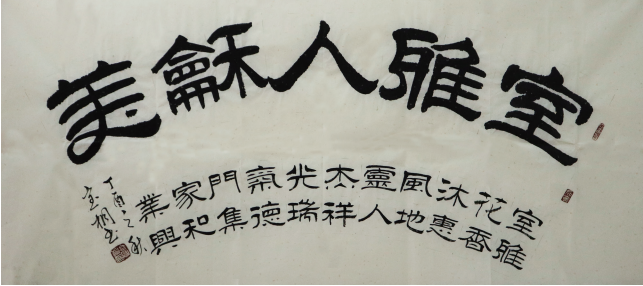 室雅人龢美
室雅花香沐惠風地靈人杰祥光瑞氣德門集家和業興
丁酉之秋